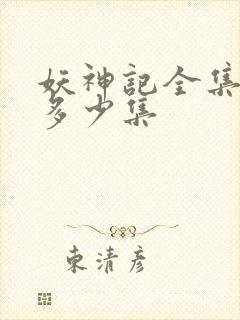 妖神記全集
多少集
東清彦